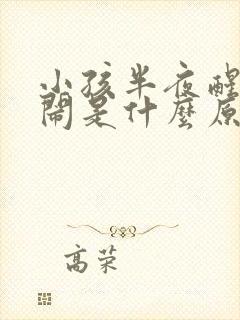 小孩半夜醒
鬧是什麼原
高荣